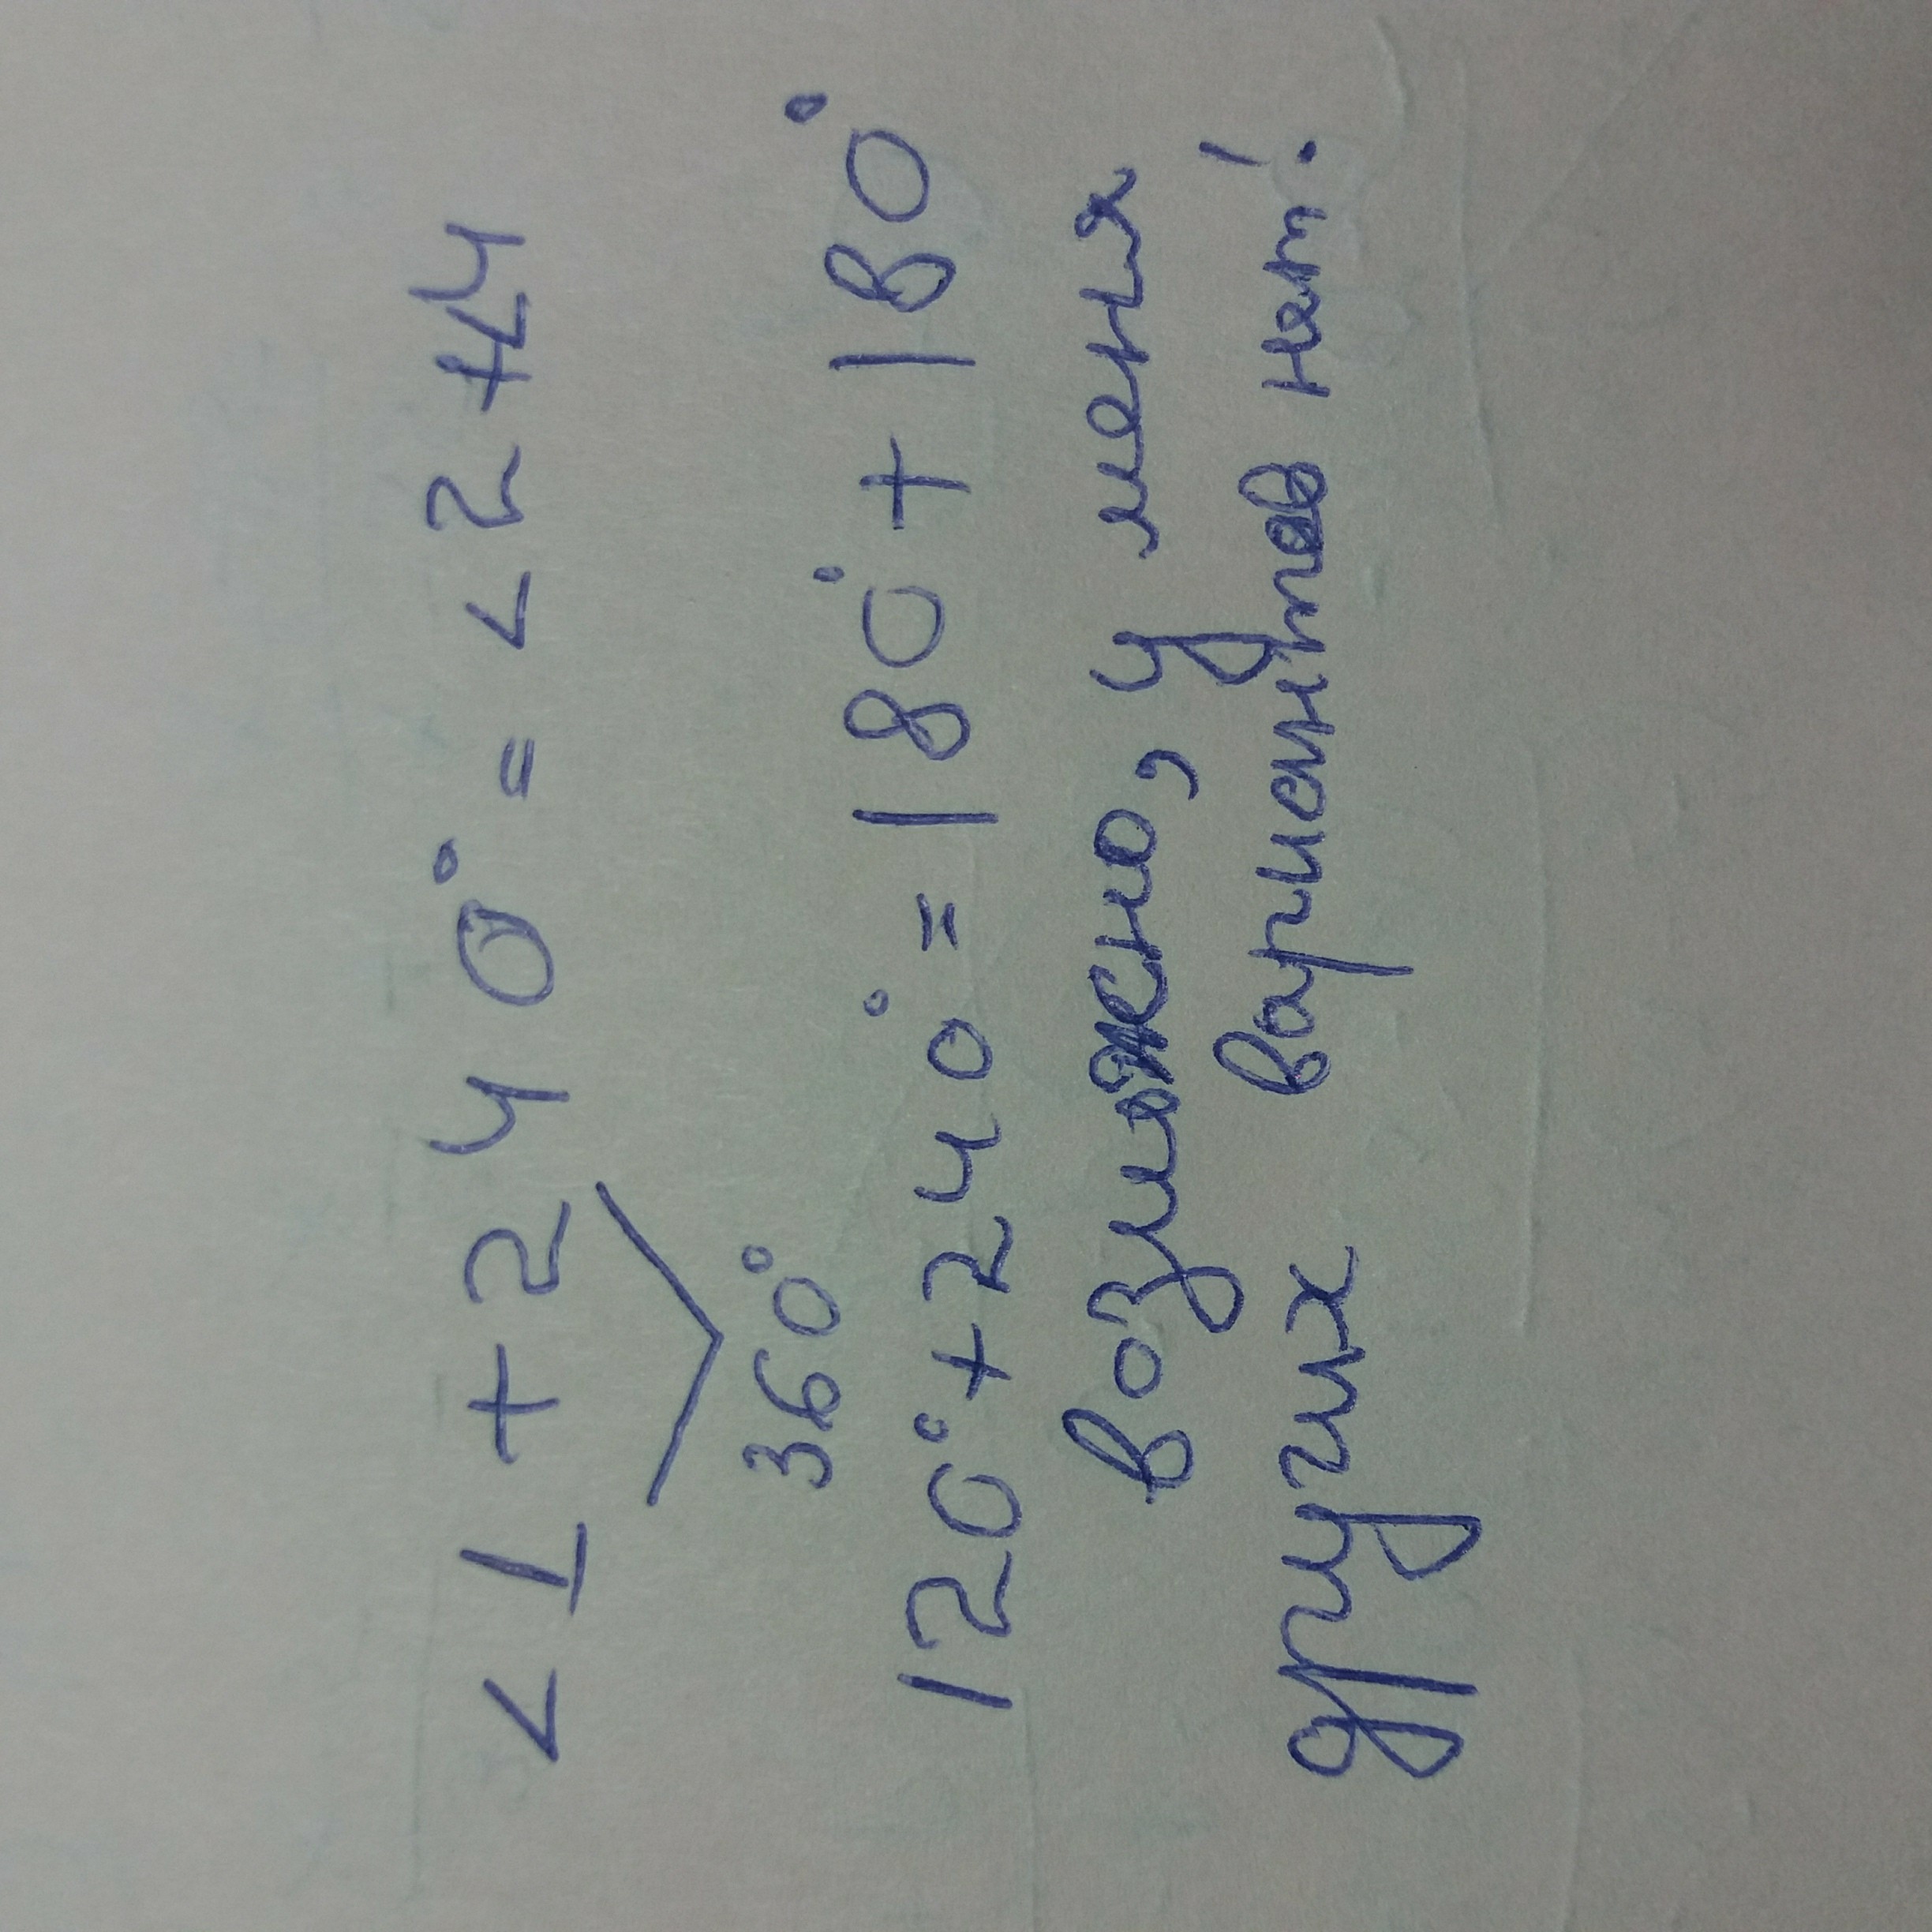 < 1 + 240° = < 2 + 4
360°
120° + 240° = 180° + 180°
возможно, у меня
других вариентов нет!